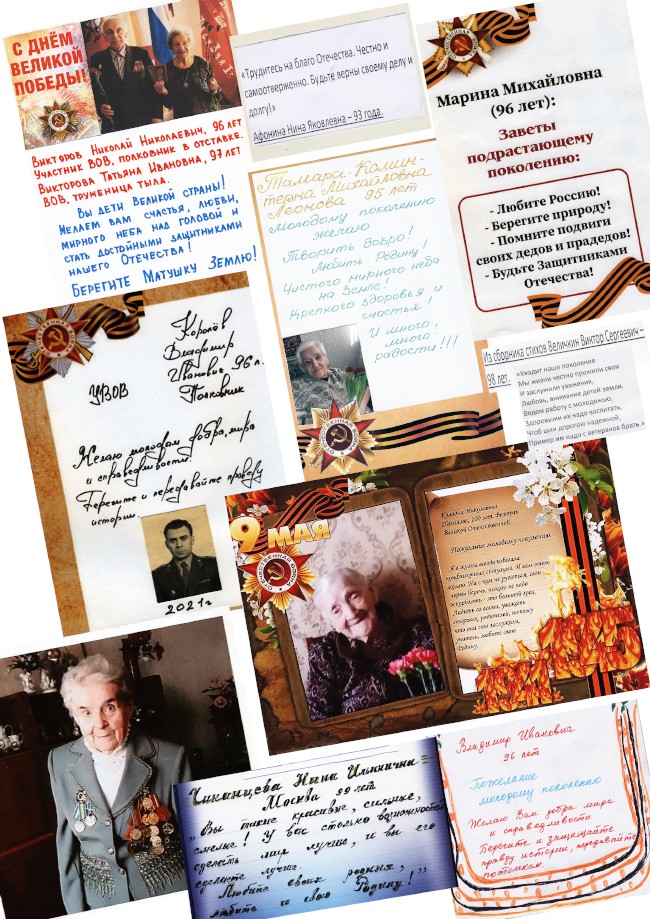 С ДНЁМ
ВЕЛИКОЙ
ПОБЕДЫ!
Викторов Николай Николаевич, 96 лет
Участник ВОВ, полковник в отставке.
Викторова Татьяна Ивановна, 97 лет
ВОВ, труженица тыла.
Вы дети Великой страны!
Желаем вам счастья, любви,
мирного неба над головой и
стать достойными защитниками
нашего Отечества!
Берегите Матушку Землю!
«Трудитесь на благо Отечества. Честно и
самоотверженно. Будьте верны своему делу и
долгу!»
Афонина Нина Яковлевна – 93 года.
Марина Михайловна
(96 лет):
Заветы
подрастающему
поколению:
- Любите Россию!
- Берегите природу!
- Помните подвиги
своих дедов и прадедов!
- Будьте Защитниками
Отечества!
Тамара-Комин-
терна Михайловна
Леонова 95 лет
Молодому поколению
желаю
Творить добро!
Любить Родину!
Чистого мирного неба
на Земле!
Крепкого здоровья и
счастья!
И много,
много
радости!!!
Из сборника стихов Величкин Виктор Сергеевич –
98 лет.
«Уходит наше поколение
Мы жизни честно прожили свои
И заслужили уважения,
Любовь, внимание детей земли.
Ведем работу с молодежью,
Здоровыми их надо воспитать,
Чтоб шли дорогою надежной,
Пример им надо с ветеранов брать.»
Королёв
Владимир
Иванович 96 л.
УВОВ Полковник
Желаю молодым добра, мира
и справедливости.
Берегите и передавайте правду
истории.
2021г
9 МАЯ
ОТЕЧЕСТВЕННАЯ ВОЙНА
Клавдия Николаевна
100 лет, Ветеран
Великой Отечественной
Пожелание молодому поколению.
Я в жизни всегда избегала
конфликтных ситуаций. И вам этого
желаю. Ни с кем не ругаться, свои
нервы беречь, никого не надо
оскорблять - это большой грех.
Ладить со всеми, уважать
старших, родителей, потому
что они это заслужили,
учитесь, любите свою
Родину.
1945
Чиканцева Нина Ильинична –
Москва 99 лет
„Вы такие красивые, сильные,
смелые! У вас столько возможностей
сделать мир лучше, и вы его
сделаете лучше.
Любите своих родных,
любите и свою Родину!"
Владимир Иванович
96 лет
Пожелание
молодому поколению
Желаю Вам добра мира
и справедливости.
Берегите и защищайте
правду истории, передавайте
потомкам.